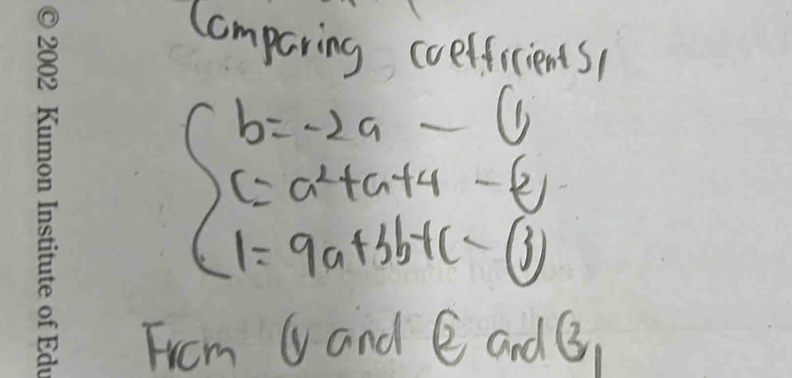 © 2002 Kumon Institute of Edu
Comparing coefficients,
b = -2a — ①
c = a²+a+4 - ②
1 = 9a+3b+c - ③
From ① and ② and ③,